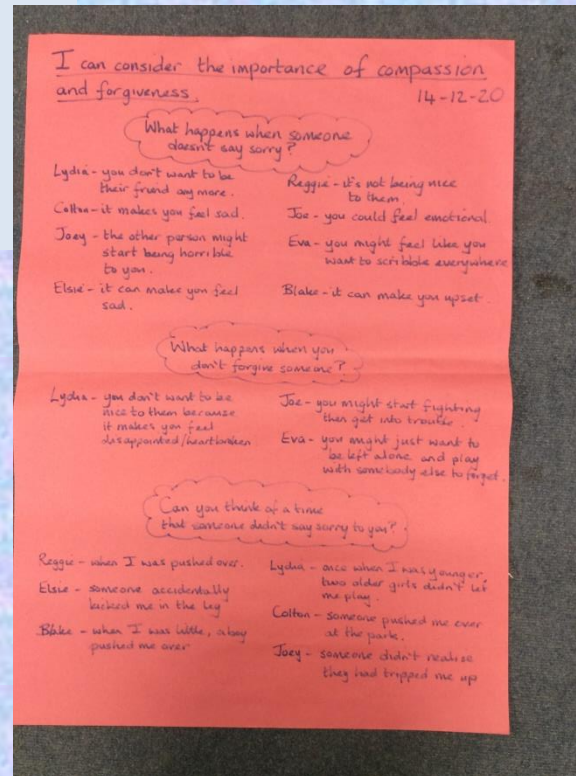 I can consider the importance of compassion
and forgiveness.
14-12-20
What happens when someone
doesn't say sorry?
Lydia - you don't want to be
their friend anymore.
Colton - it makes you feel sad.
Joey - the other person might
start being horrible
to you.
Elsie - it can make you feel
sad.
Reggie - it's not being nice
to them.
Joe - you could feel emotional
Eva - you might feel like you
want to scribble everywhere
Blake - it can make you upset.
What happens when you
don't forgive someone?
Lydia - you don't want to be
nice to them because
it makes you feel
disappointed/heartbroken
Joe - you might start fighting
then get into trouble.
Eva - you might just want to
be left alone and play
with somebody else to forget.
Can you think of a time
that someone didn't say sorry to you?
Reggie - when I was pushed over.
Elsie - someone accidentally
kicked me in the leg
Blake - when I was little, a boy
pushed me over
Lydia - once when I was younger,
two older girls didn't let
me play.
Colton - someone pushed me over
at the park.
Joey - someone didn't realise
they had tripped me up